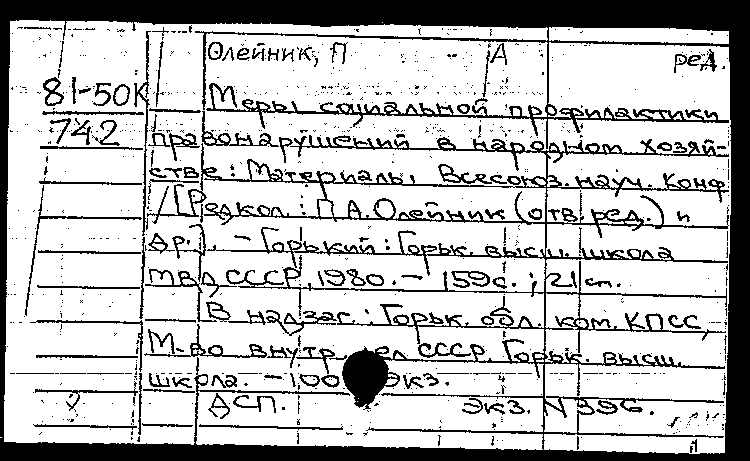 Олейник, П А ред.
81-50К
742
Меры социальной профилактики
правонарушений в народном хозяй-
стве: Материалы Всесоюз. науч. конф
/[Редкол.: П.А.Олейник (отв. ред.) и
др.]. - Горький: Горьк. высш. школа
МВД СССР, 1980. - 159с.; 21 см.
В надзаг.: Горьк. обл. ком. КПСС,
М-во внутр. дел СССР. Горьк. высш.
школа. - 100 экз.
ДСП. экз. N 396.